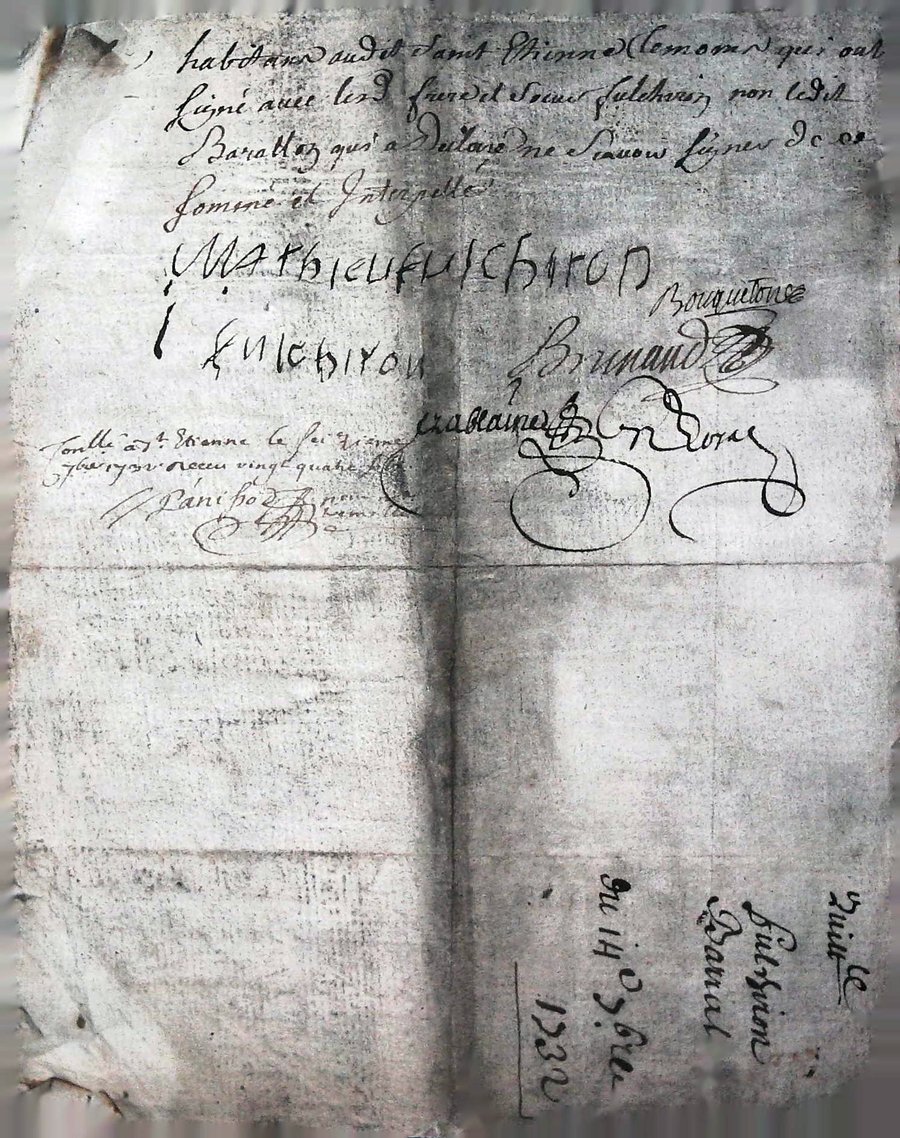 habitans audit Saint Etienne temoins qui ont
signé avec lesd frere et Soeur fulchiron non ledit
Barallon qui a Declaré ne Scavoir signer de ce
sommé et Interpellé
Mathieu fulchiron
Bouquetone
fulchiron
Brunand
Crablaine
Conllé a St. Etienne le Seizieme
7bre 1732 Receu vingt quatre
Panihod
quitt ce
fulchiron
Barral
Du 14e 7bre
1732